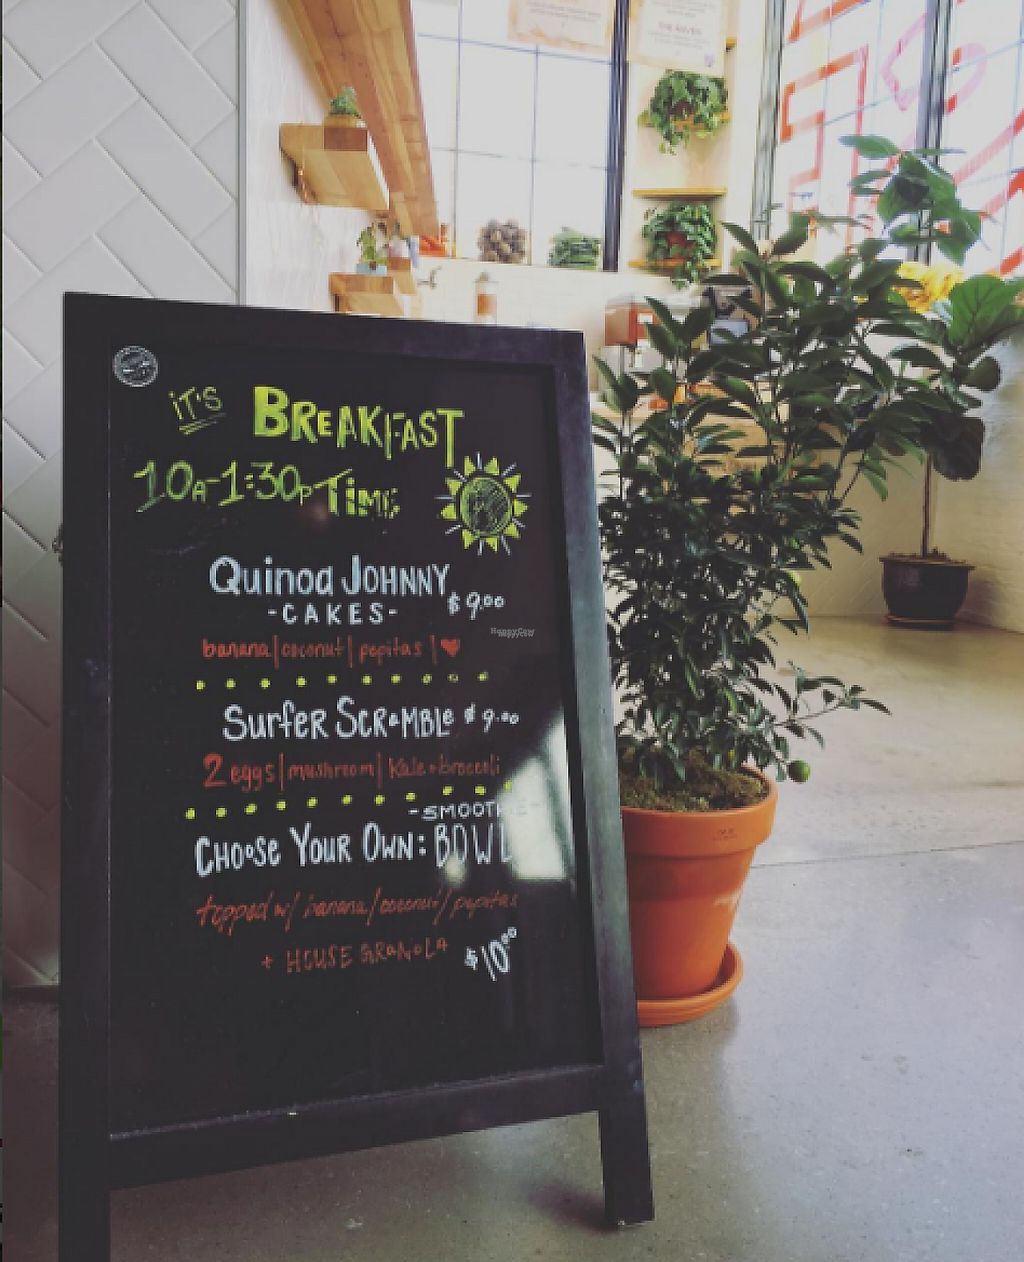 THE RAVEN
iT'S BREAKFAST
10A-1:30P TiME
Quinoa JOHNNY
-CAKES- $9.00
banana|coconut|pepitas|♥
SurfER SCRAMBLE $9.00
2 eggs|mushroom|Kale+broccoli
-SMOOTHIE-
CHOoSE YOUR OWN: BOWL
topped w/ banana/coconut/pepitas
+ HOUSE GRANOLA $10.00
HappyCow